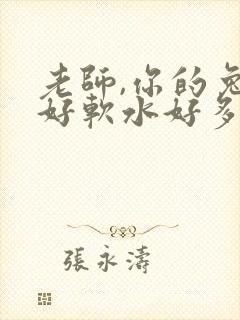 老師,你的兔
好軟水好多
張永濤